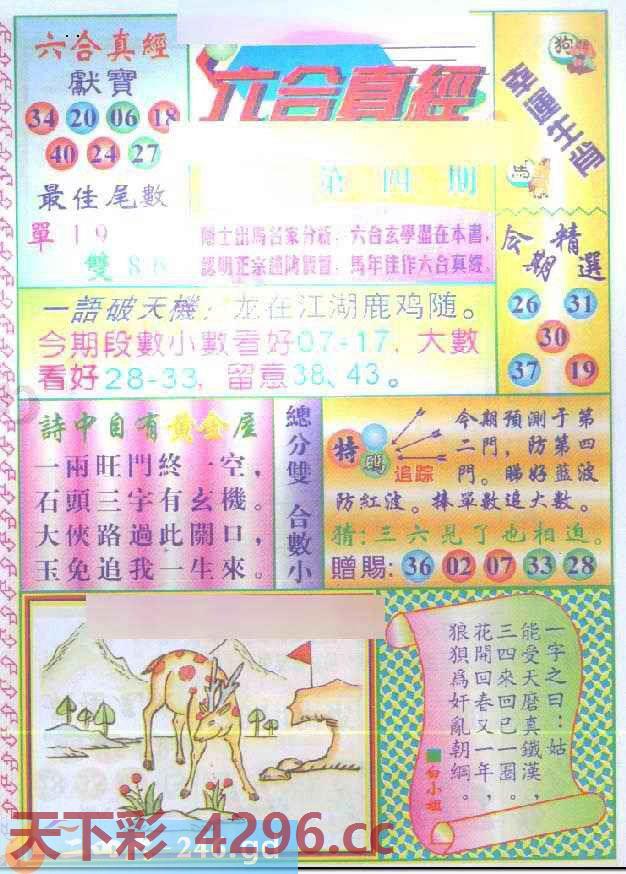 六合真經
獻寶
34 20 06 18
40 24 27
最佳尾數
單 1 9
雙 8 6
六合真經
第四期
狗
馬
今期精選
26 31
30
37 19
一語破天機：龙在江湖鹿鸡随。
今期段數小數看好07-17，大數
看好28-33，留意38、43。
詩中自有黃金屋
一兩旺門終一空，
石頭三字有玄機。
大俠路過此開口，
玉兔追我一生來。
總分雙 合數小
特碼
追踪
今期預測于第
二門，防第四
門。睇好蓝波
防紅波。捧單數追大數。
猜：三六見了也相迫。
贈賜：36 02 07 33 28
一字之曰：姑
能受天磨真鐵漢，
三四來回已一圈。
花開回春又一年，
狼狽爲奸亂朝綱。
白小姐
天下彩 4296.cc
246.gd